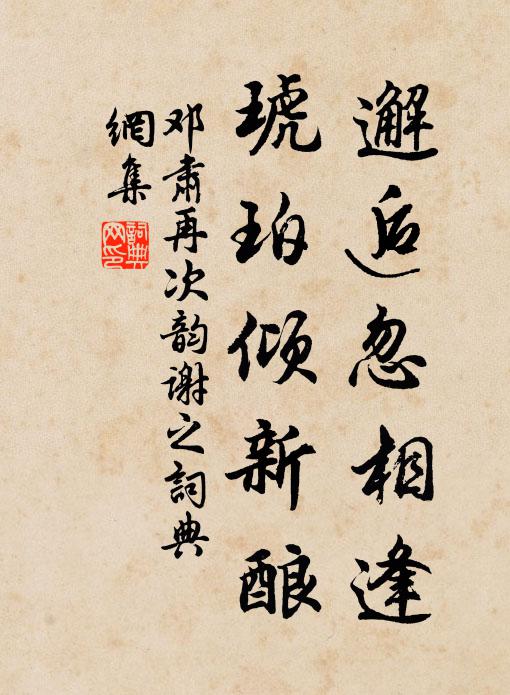 邂逅忽相逢
琥珀倾新酿
邓肃再次韵谢之詞典
網集
詞典網印